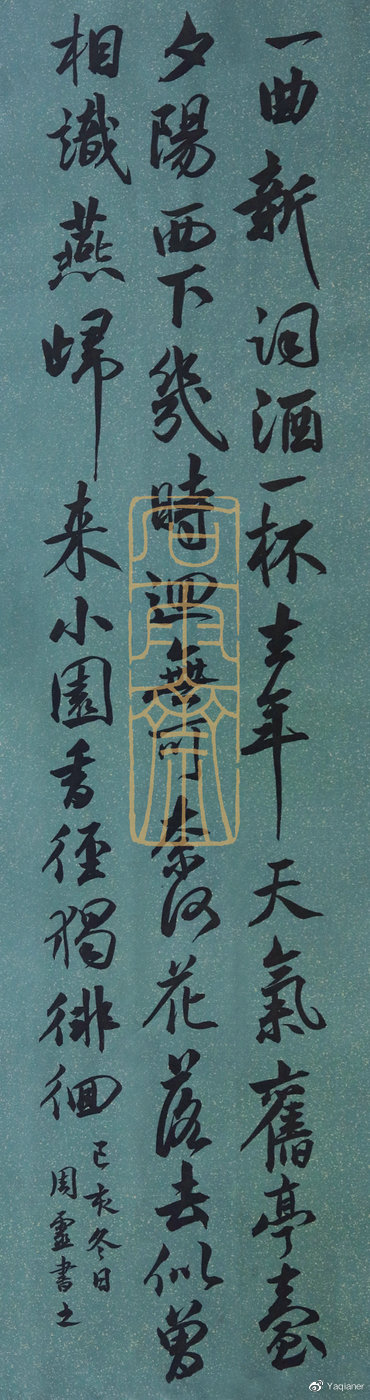 一曲新词酒一杯去年天氣舊亭臺
夕陽西下幾時迴無可奈何花落去似曾
相識燕歸来小園香徑獨徘徊
己亥冬日
周靈書之
Yaqianer